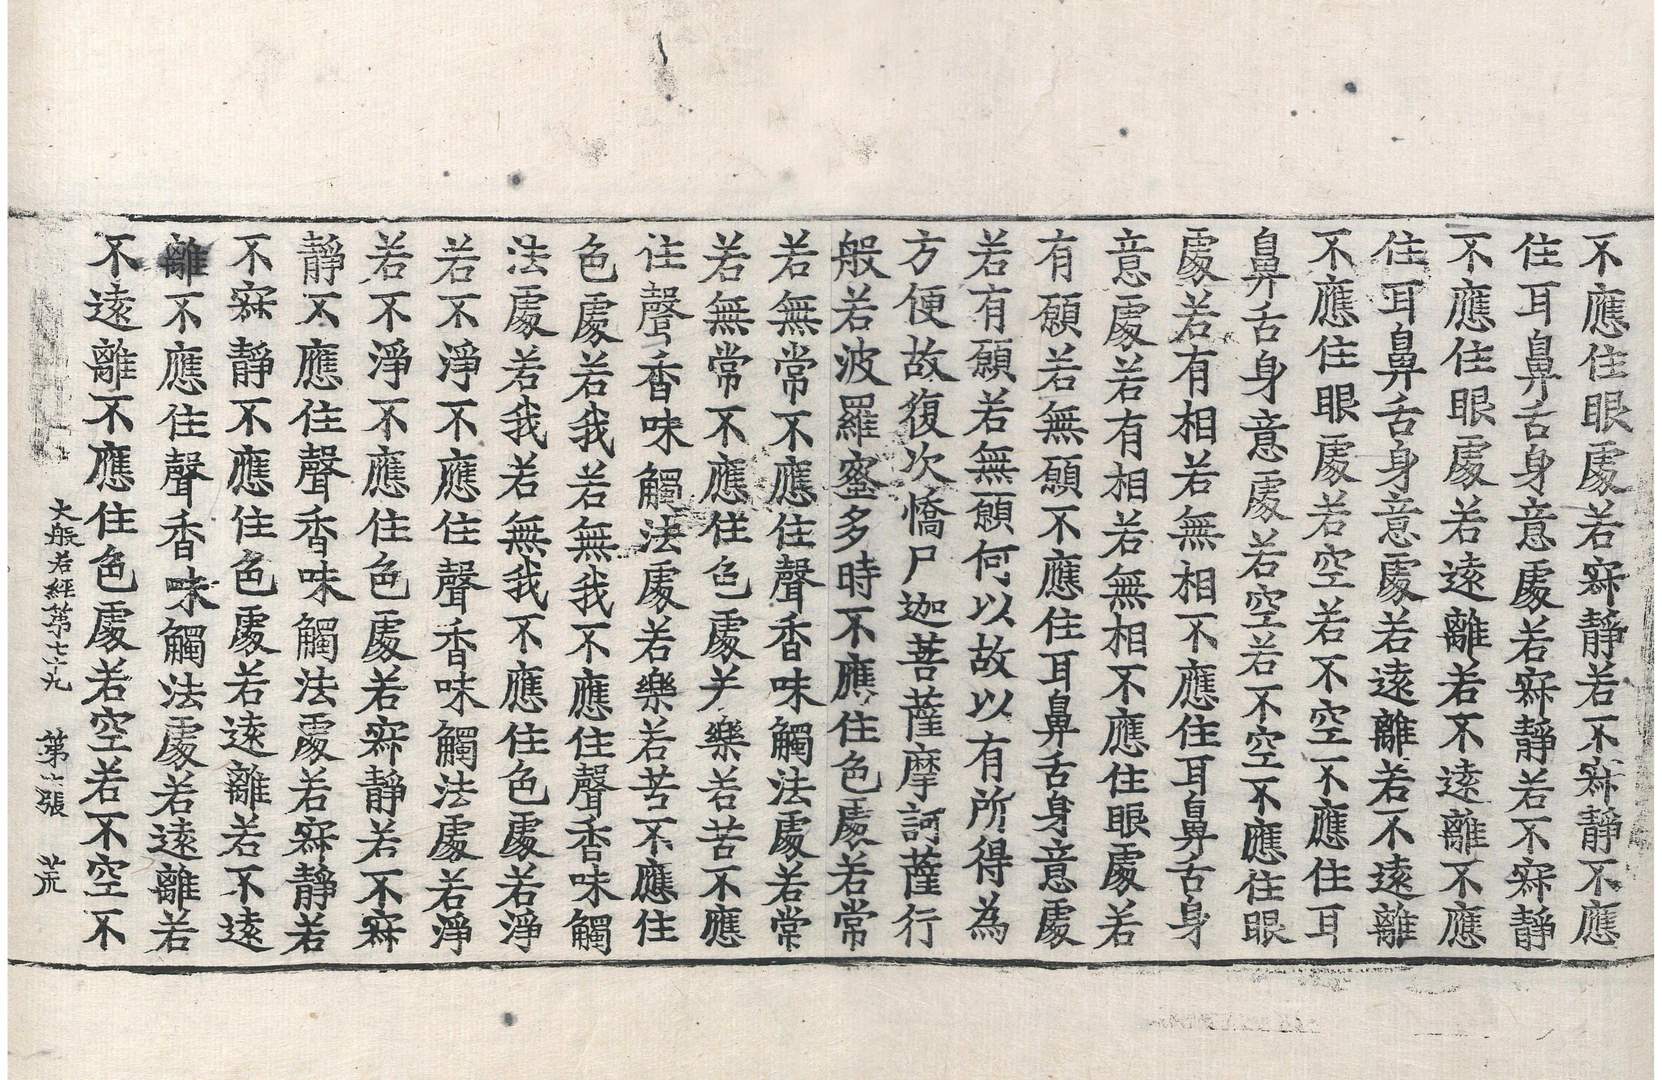 不應住眼處若寂靜若不寂靜不應
住耳鼻舌身意處若寂靜若不寂靜
不應住眼處若遠離若不遠離不應
住耳鼻舌身意處若遠離若不遠離
不應住眼處若空若不空不應住耳
鼻舌身意處若空若不空不應住眼
處若有相若無相不應住耳鼻舌身
意處若有相若無相不應住眼處若
有願若無願不應住耳鼻舌身意處
若有願若無願何以故以有所得為
方便故復次憍尸迦菩薩摩訶薩行
般若波羅蜜多時不應住色處若常
若無常不應住聲香味觸法處若常
若無常不應住色處若樂若苦不應
住聲香味觸法處若樂若苦不應住
色處若我若無我不應住聲香味觸
法處若我若無我不應住色處若淨
若不淨不應住聲香味觸法處若淨
若不淨不應住色處若寂靜若不寂
靜不應住聲香味觸法處若寂靜若
不寂靜不應住色處若遠離若不遠
離不應住聲香味觸法處若遠離若
不遠離不應住色處若空若不空不
大般若經第七十九 第 張 荒